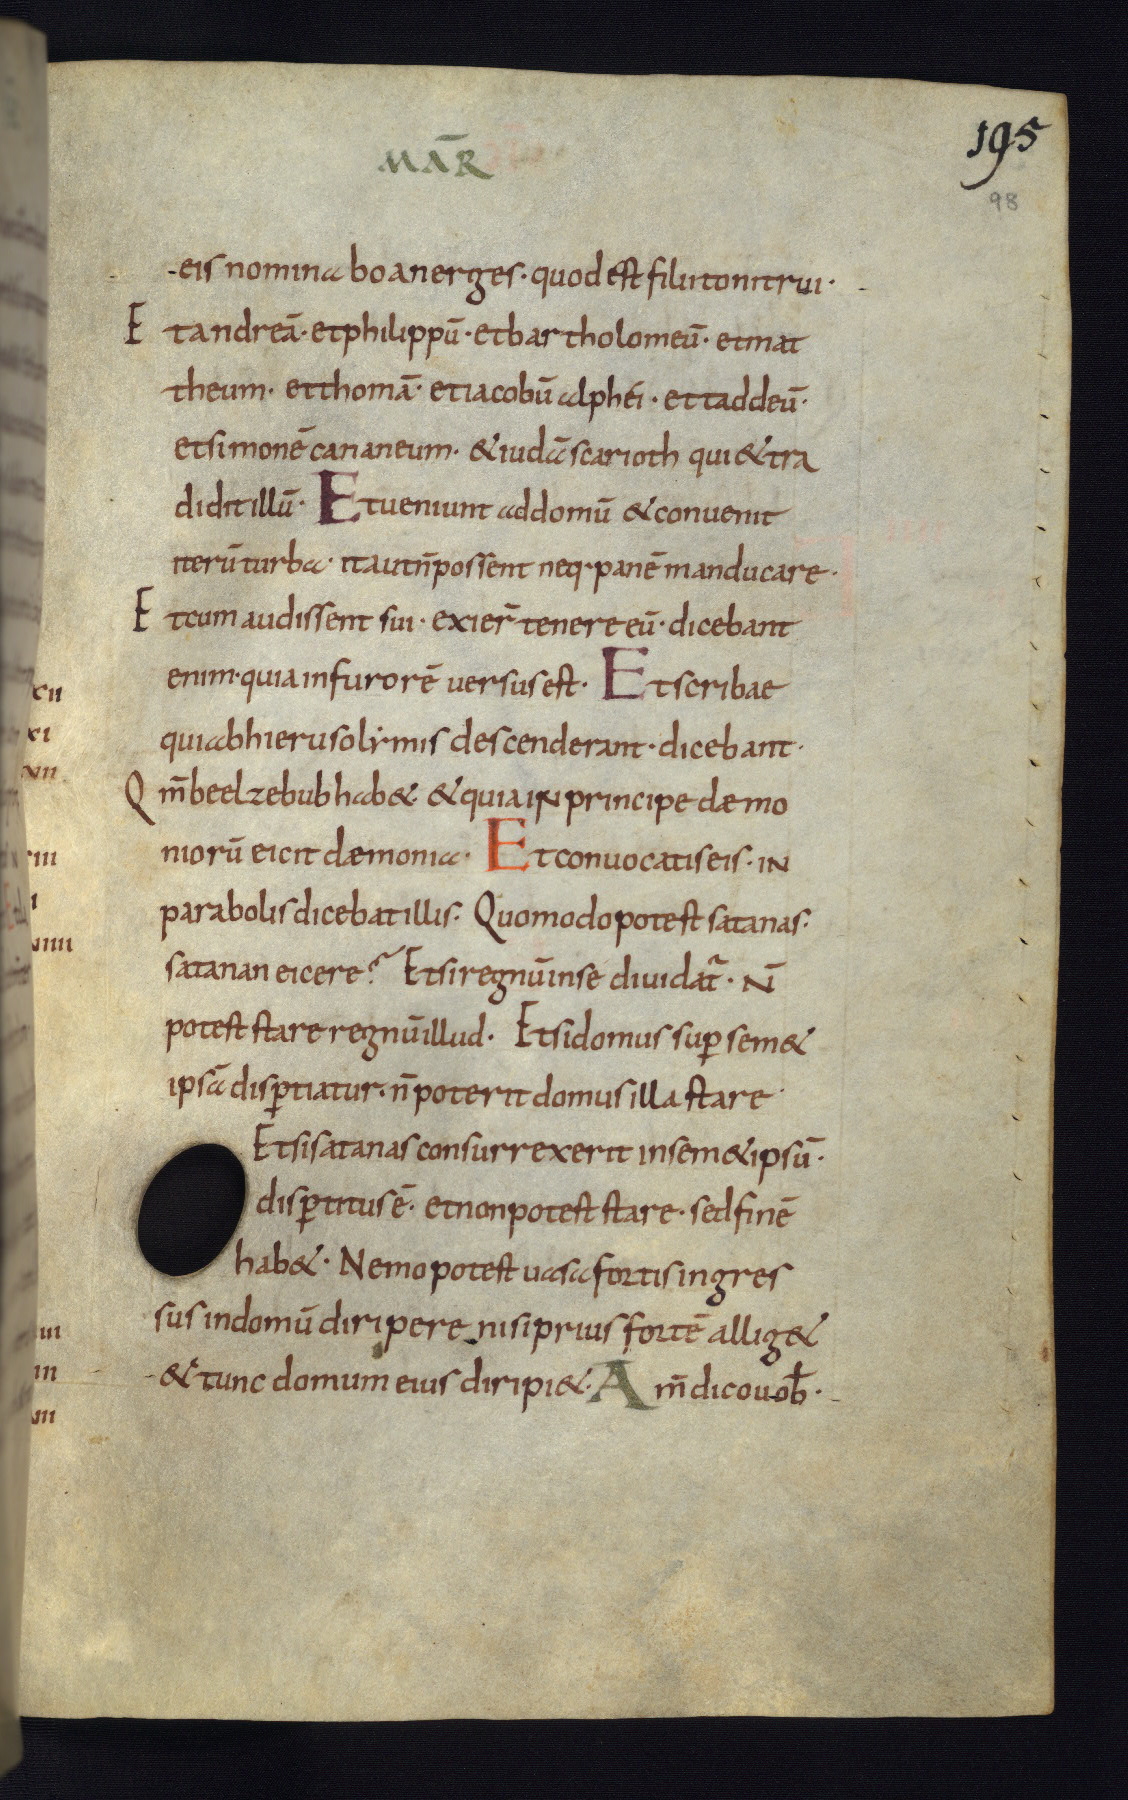 195
98
MAR̄
eis nomina boanerges · quod est filii tonitrui ·
Et andreā · et philippū · et bartholomeū · et mat
theum · et thomā · et iacobū alphei · et taddeū ·
et simonē cananeum · & iudā scarioth qui & tra
didit illū · Et ueniunt ad domū & conuenit
iterū turba · ita ut n̄ possent neq· panē manducare ·
Et cum audissent sui · exier̄ tenere eū · dicebant
enim · quia in furorē uersus est · Et scribae
qui ab hierusolẏmis descenderant · dicebant ·
Qm̄ beelzebub hab& · & quia in principe dæmo
niorū eicit dæmonia · Et conuocatis eis · in
parabolis dicebat illis · Quomodo potest satanas ·
satanan eicere? Et si regnū in se diuidat̄ · N̄
potest stare regnū illud · Et si domus sup̄ sem&
ipsā disp̄tiatur · n̄ poterit domus illa stare ·
Et si satanas consurrexerit in sem&ipsū ·
disp̄titus ē · et non potest stare · sed finē
hab& · Nemo potest uasa fortis ingres
sus in domū diripere nisi prius fortē allig&
& tunc domum eius diripi& · Am̄ dico uob̄ ·
xii
xi
xii
iii
i
iiii
iii
iii
iii